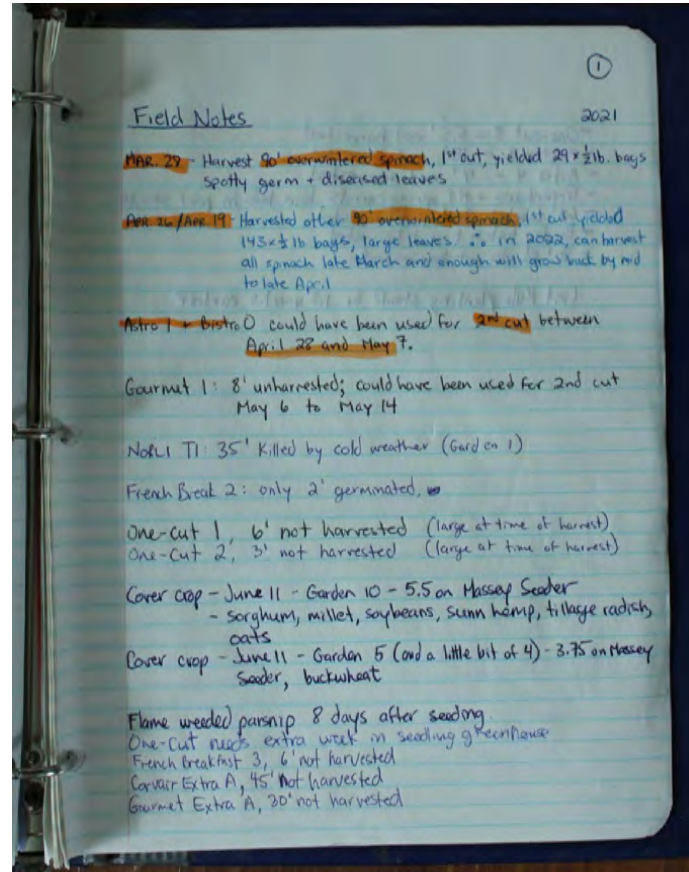 ①
Field Notes 2021
MAR. 29 - Harvest 90' overwintered spinach, 1st cut, yielded 29 x ½ lb. bags
spotty germ + diseased leaves
Apr. 26/Apr. 19 - Harvested other 90' overwintered spinach, 1st cut yielded
143 x ½ lb bags, large leaves ∴ in 2022, can harvest
all spinach late March and enough will grow back by mid
to late April
Astro 1 + Bistro 0 could have been used for 2nd cut between
April 28 and May 7.
Gourmut 1: 8' unharvested; could have been used for 2nd cut
May 6 to May 14
NORLI T1: 35' Killed by cold weather (Garden 1)
French Break 2: only 2' germinated,
One-cut 1, 6' not harvested (large at time of harvest)
One-Cut 2, 3' not harvested (large at time of harvest)
Cover crop - June 11 - Garden 10 - 5.5 on Massey Seeder
- sorghum, millet, soybeans, sunn hemp, tillage radish,
oats
Cover crop - June 11 - Garden 5 (and a little bit of 4) - 3.75 on Massey
Seeder, buckwheat
Flame weeded parsnip 8 days after seeding.
One-Cut needs extra week in seedling greenhouse
French Breakfast 3, 6' not harvested
Corvair Extra A, 45' not harvested
Gourmet Extra A, 30' not harvested